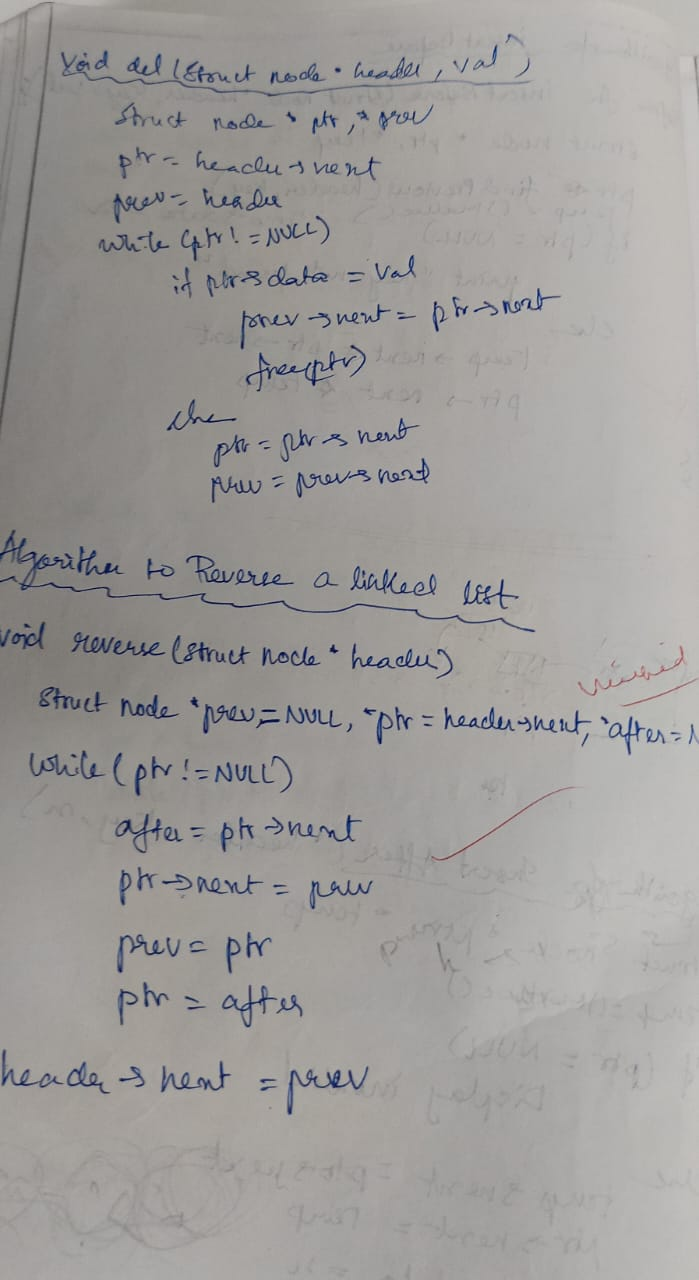 Void del (Struct node * header, val)
Struct node * ptr, * prev
ptr = header → next
prev = header
while (ptr != NULL)
if ptr → data = val
prev → next = ptr → next
free(ptr)
else
ptr = ptr → next
prev = prev → next
Algorithm to Reverse a linked list
void reverse (struct node * header)
Struct node *prev = NULL, *ptr = header → next, *after = N
while (ptr != NULL)
after = ptr → next
ptr → next = prev
prev = ptr
ptr = after
header → next = prev